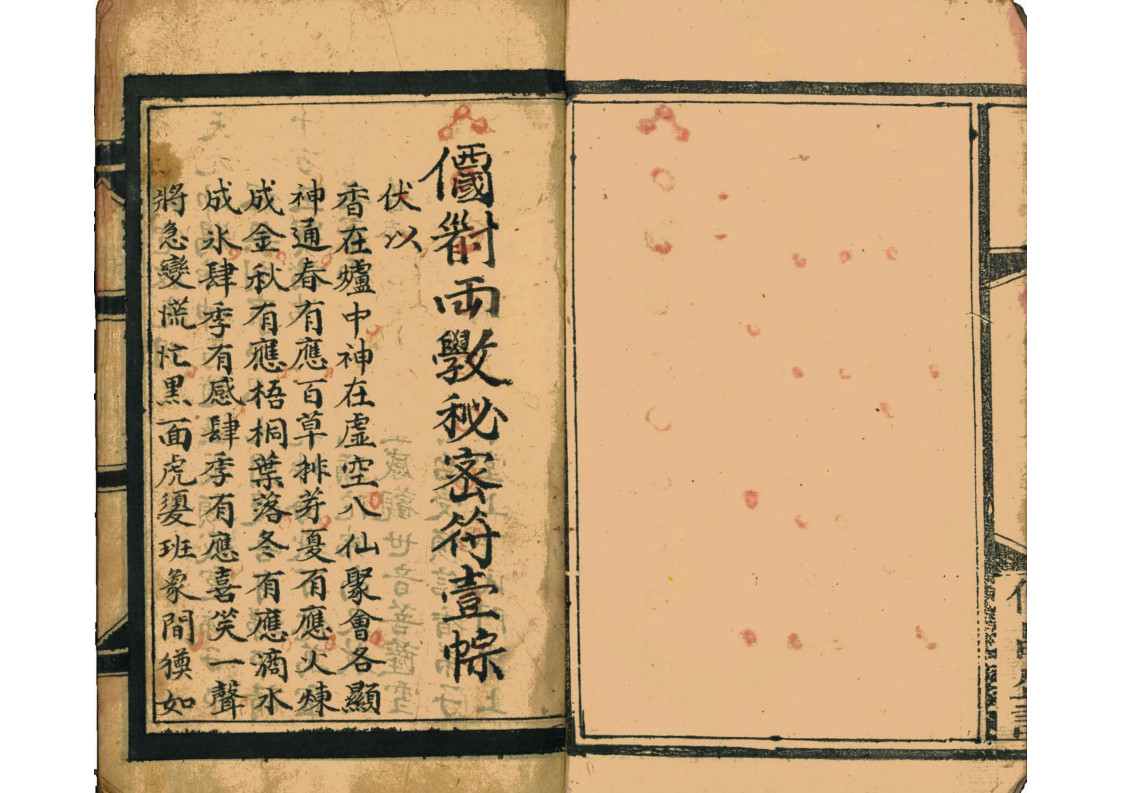 兩教秘密符壹幒
伏以
香在爐中神在虛空八仙聚會各顯
神通春有應百草排芽憂有應火煉
成金秋有應梧桐葉落冬有應滴水
成氷肆季有感肆季有應喜笑一聲
將急變慌忙黑面虎班象間如